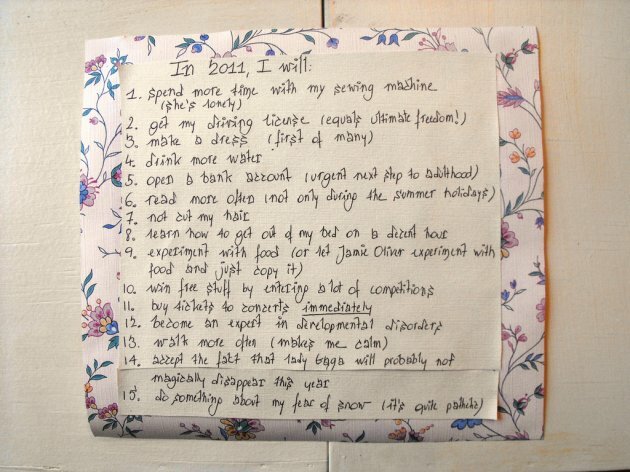 In 2011, I will:
1. spend more time with my sewing machine
(she's lonely)
2. get my driving license (equals ultimate freedom!)
3. make a dress (first of many)
4. drink more water
5. open a bank account (urgent next step to adulthood)
6. read more often (not only during the summer holidays)
7. not cut my hair
8. learn how to get out of my bed on a decent hour
9. experiment with food (or let Jamie Oliver experiment with
food and just copy it)
10. win free stuff by entering a lot of competitions
11. buy tickets to concerts immediately
12. become an expert in developmental disorders
13. walk more often (makes me calm)
14. accept the fact that lady gaga will probably not
magically disappear this year
15. do something about my fear of snow (it's quite pathetic)